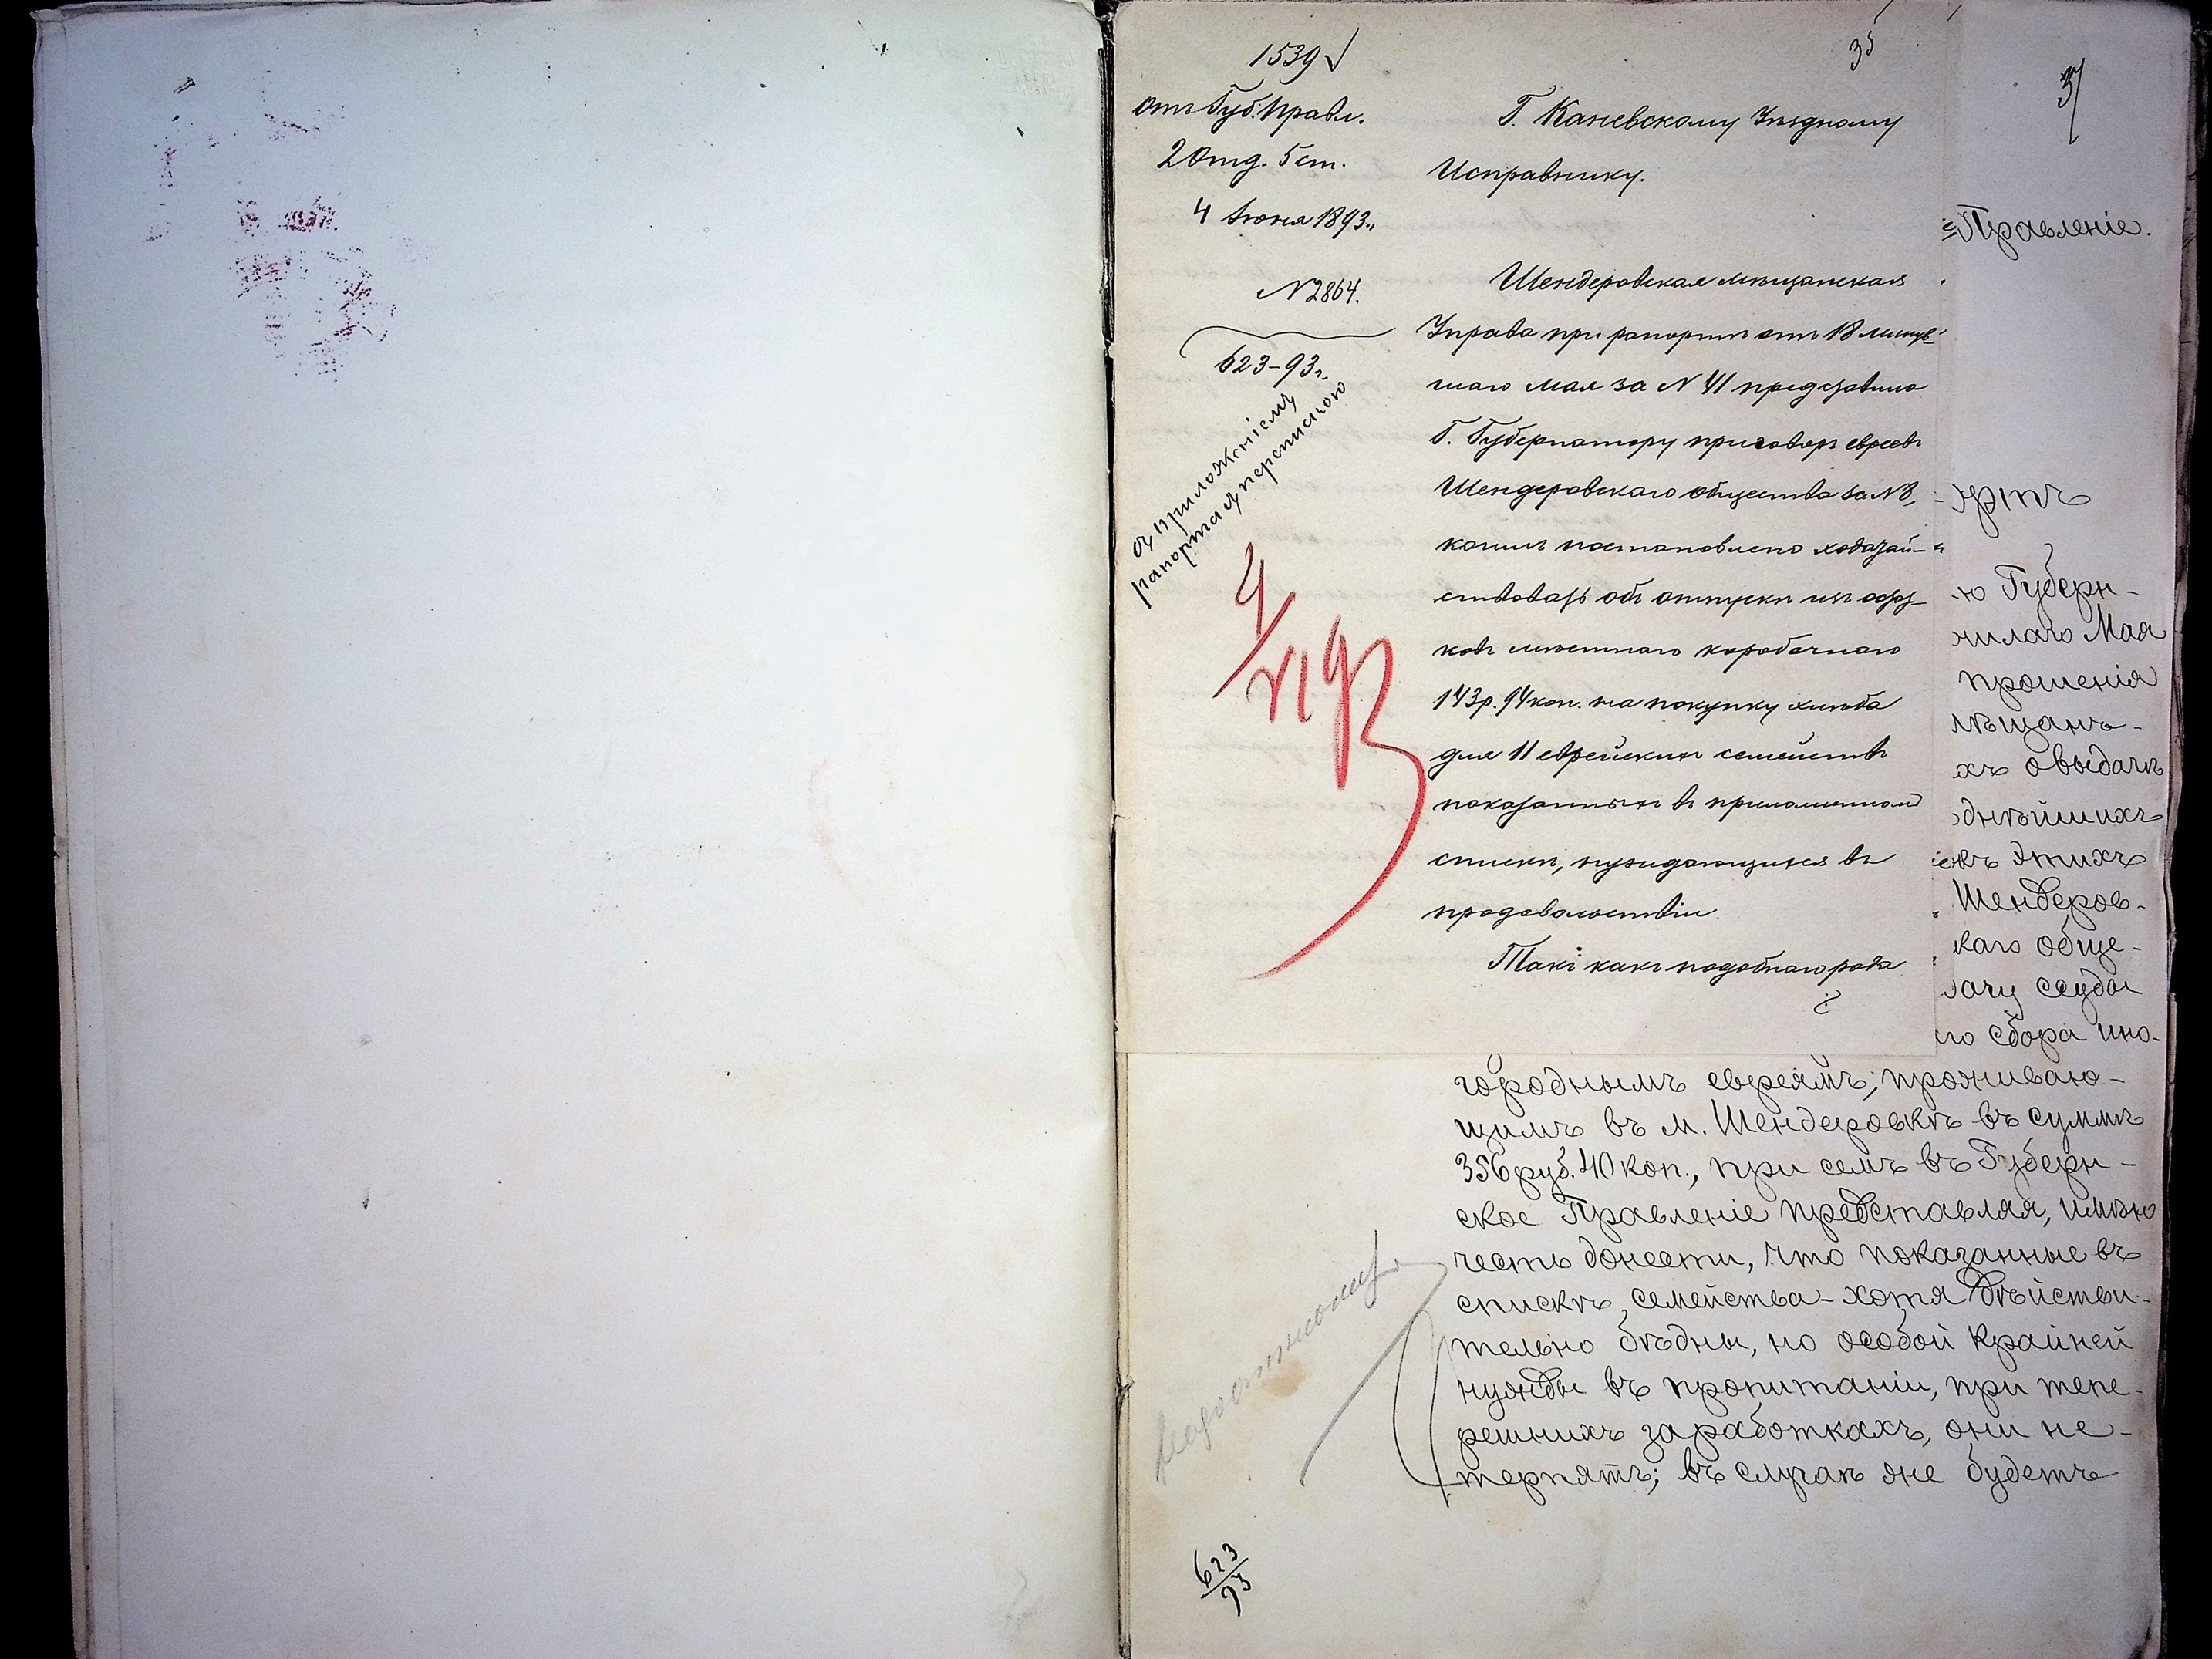 1539
35
37
отъ Губ. Правл.
2 Отд. 5 ст.
4 Іюня 1893 г.
N 2864.
623-93 г.
съ приложеніемъ
рапорта съ перепискою
4/VI 93
Г. Каневскому Уѣздному
Исправнику.
Шендеровская мѣщанская
Управа при рапортѣ отъ 18 минув-
шаго мая за N 41 представила
Г. Губернатору приговоръ евреевъ
Шендеровскаго общества за N 8,
коимъ постановлено ходатай-
ствовать объ отпускѣ изъ остат-
ковъ мѣстнаго коробочнаго
143 р. 94 коп. на покупку хлѣба
для 11 еврейскихъ семействъ
показанныхъ въ приложенномъ
спискѣ, нуждающихся въ
продовольствіи.
Такъ какъ подобнаго рода
Правленіе.
ортъ
ю Губерн-
шлаго Мая
прошенія
мѣщанъ-
хъ о выдачѣ
днѣйшихъ
этихъ
Шендеров-
каго обще-
дачу ссуды
го сбора ино-
городнымъ евреямъ, прожива​ю-
щимъ въ м. Шендеровкѣ въ суммѣ
356 руб. 40 коп., при семъ въ Губерн-
ское Правленіе представляя, имѣю
честь донести, что показанные въ
спискѣ семейства - хотя дѣйстви-
тельно бѣдны, но особой крайней
нужды въ пропитаніи, при тепе-
решнихъ заработкахъ, они не-
терпятъ; въ случаѣ же будетъ
623/93